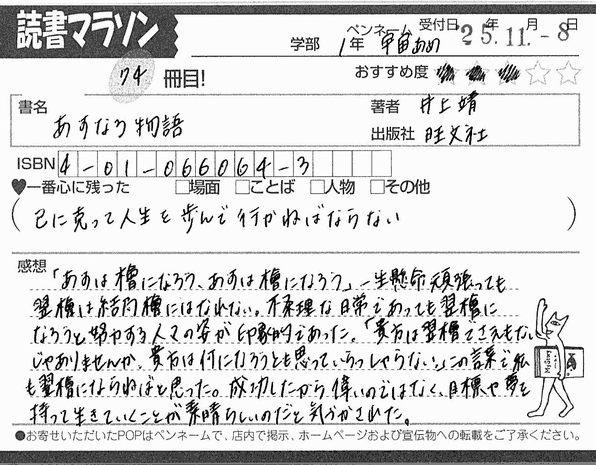 読書マラソン
学部 1年 ペンネーム 宇宙あめ 受付日 25年11月-8日
74冊目!
おすすめ度
書名 あすなろ物語
著者 井上靖
出版社 旺文社
ISBN 4-01-066064-3
♥一番心に残った □場面 □ことば □人物 □その他
(己に克って人生を歩んで行かねばならない)
感想
「あすは檜になろう、あすは檜になろう」一生懸命頑張っても
翌檜は結局檜にはなれない。不条理な日常であっても翌檜に
なろうと努力する人々の姿が印象的であった。「貴方は翌檜でさえもない
じゃありませんか。貴方は何になろうとも思っていらっしゃらない。」この言葉で私
も翌檜にならねばと思った。成功したから偉いのではなく、目標や夢を
持って生きていくことが素晴らしいのだと気づかされた。
●お寄せいただいたPOPはペンネームで、店内で掲示、ホームページおよび宣伝物への転載をご了承ください。